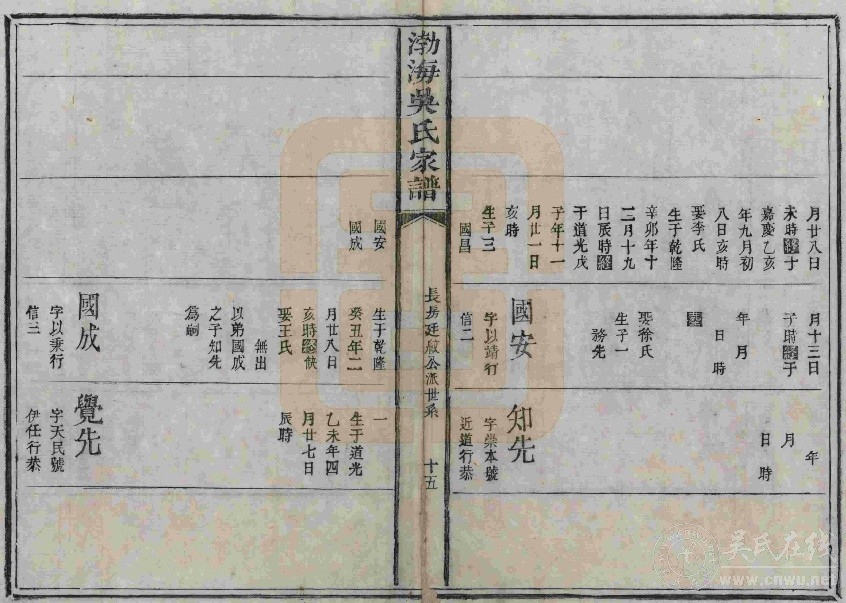 月廿八日
未時終于
嘉慶乙亥
年九月初
八日亥時
娶李氏
生于乾隆
辛卯年十
二月十九
日辰時終
于道光戊
子年十一
月廿一日
亥時
生子三
國昌
月十三日
子時終于
年月
日時
娶徐氏
生子一
務先
國安
字以靖行
信二
年
月
日時
知先
字崇本號
近道行恭
渤海吳氏家譜
長房廷啟公派世系
十五
國安
國成
生于乾隆
癸丑年二
月廿八日
亥時終缺
娶王氏
無出
以弟國成
之子知先
爲嗣
國成
字以秉行
信三
一
生于道光
乙未年四
月廿七日
辰時
覺先
字天民號
伊任行恭
吳氏在线
www.cnwu.net